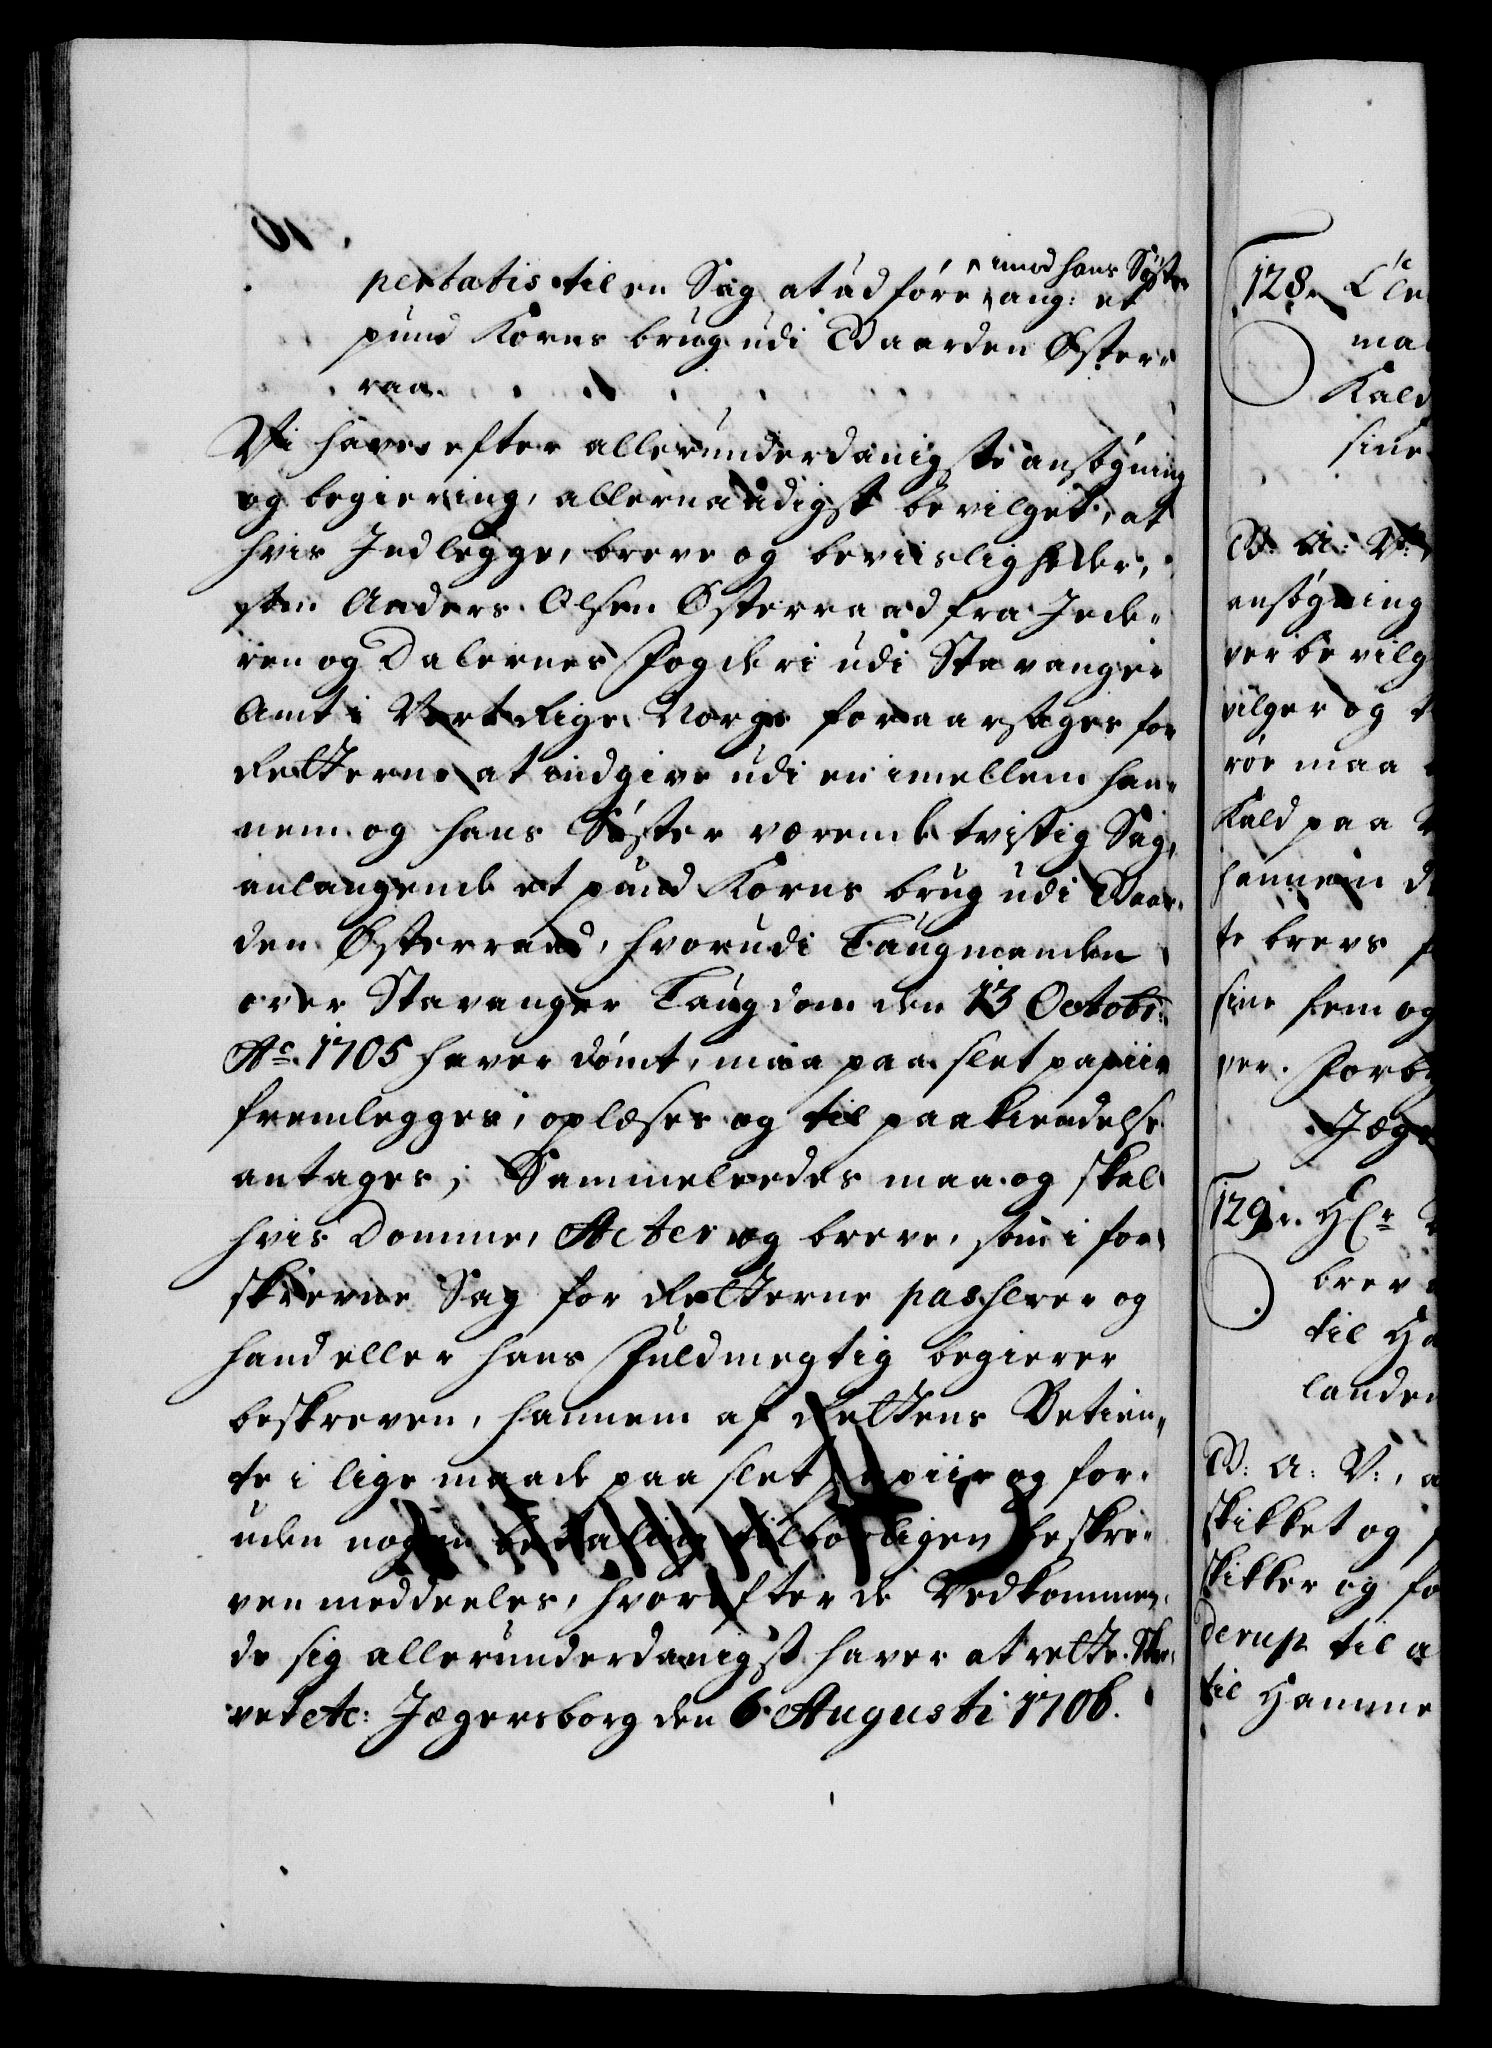 pertatis til en Sag at udføre ^ imod hans Søster
ang: et
pund Korns brug udi Gaarden Øster-
raa.
Vi have efter allerunderdanigste ansøgning
og begiering, allernaadigst bevilget, at
hvis Indlegge, breve og beviisligheder,
som Anders Olsen Østerraad fra Jede-
ren og Dalernes Fogderi udi Stavanger
Amt i Vort Rige Norge foraarsages for
Retterne at indgive udi en imellem han-
nem og hans Søster værende tvistig Sag,
anlangende et pund Korns brug udi Gaar-
den Østerraad, hvorudi Laugmanden
over Stavanger Laugdom den 13 Octobr:
Ao. 1705 haver dømt, maa paa slet papiir
fremlegges, oplæses og til paakiendelse
antages; Sammeledes maa og skal
hvis Domme, Acter og breve, som i for-
skrevne Sag for Retterne passerer og
hand eller hans Fuldmegtig begierer
beskreven, hannem af Rettens Betien-
te i lige maade paa slet papiir og for-
uden nogen betaling tilbørligen beskre-
ven meddeeles, hvorefter de Vedkommen-
de sig allerunderdanigst haver at rette. Skre-
vet etc: Jægersborg den 6 Augusti 1706.
128.
ma
Kald
sine
G: A: V:
ansøgning
ver bevilg
vilger og
røe maa
Kald paa
hannem
te brevs
sine hem og
ver. Forby
Jæger
129. Hr
brev
til Ha
landen
G: A: V:,
skikket og
skikker og fo
derup til
til Hamme